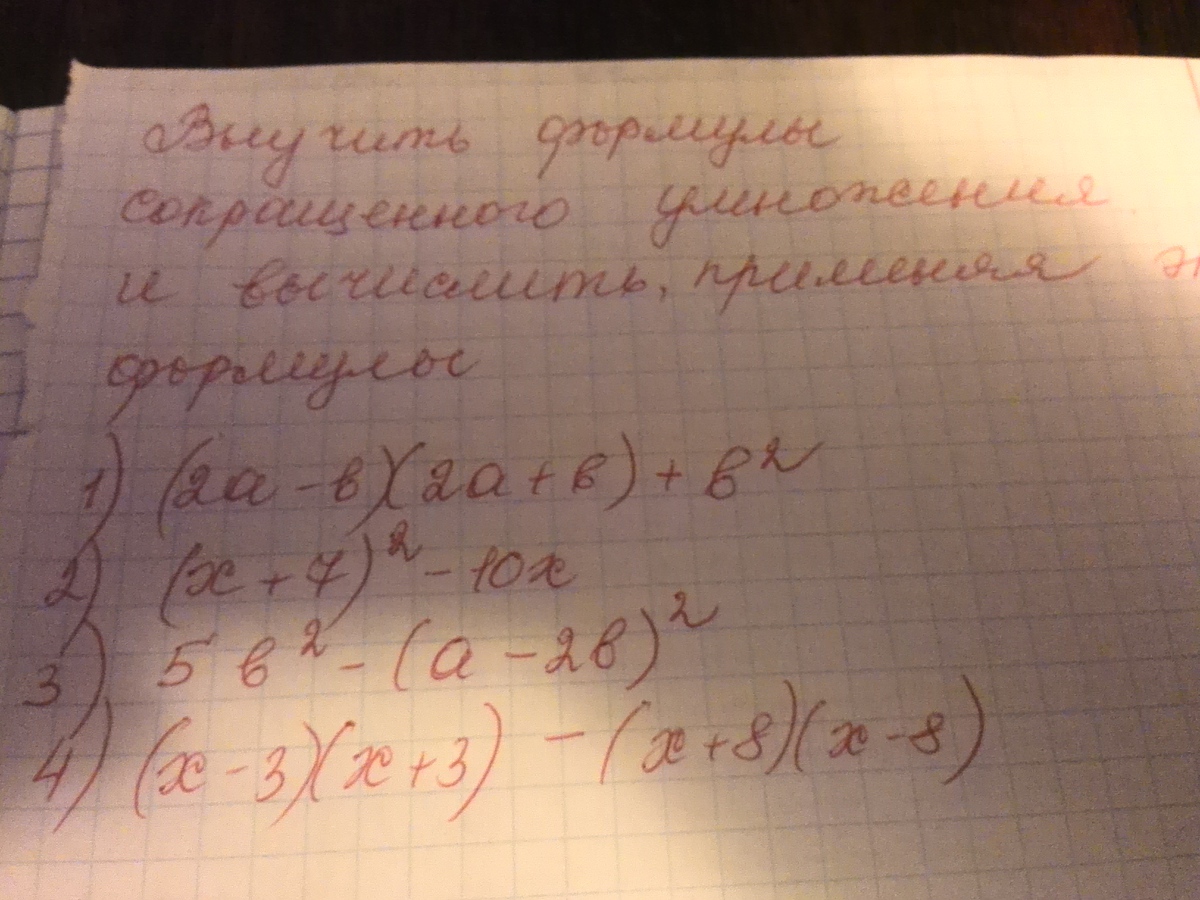 Выучить формулы
сокращенного умножения
и вычислить, применяя
формулы
1) (2а - в)(2а + в) + в²
2) (х + 7)² - 10х
3) 5в² - (а - 2в)²
4) (х - 3)(х + 3) - (х + 8)(х - 8)